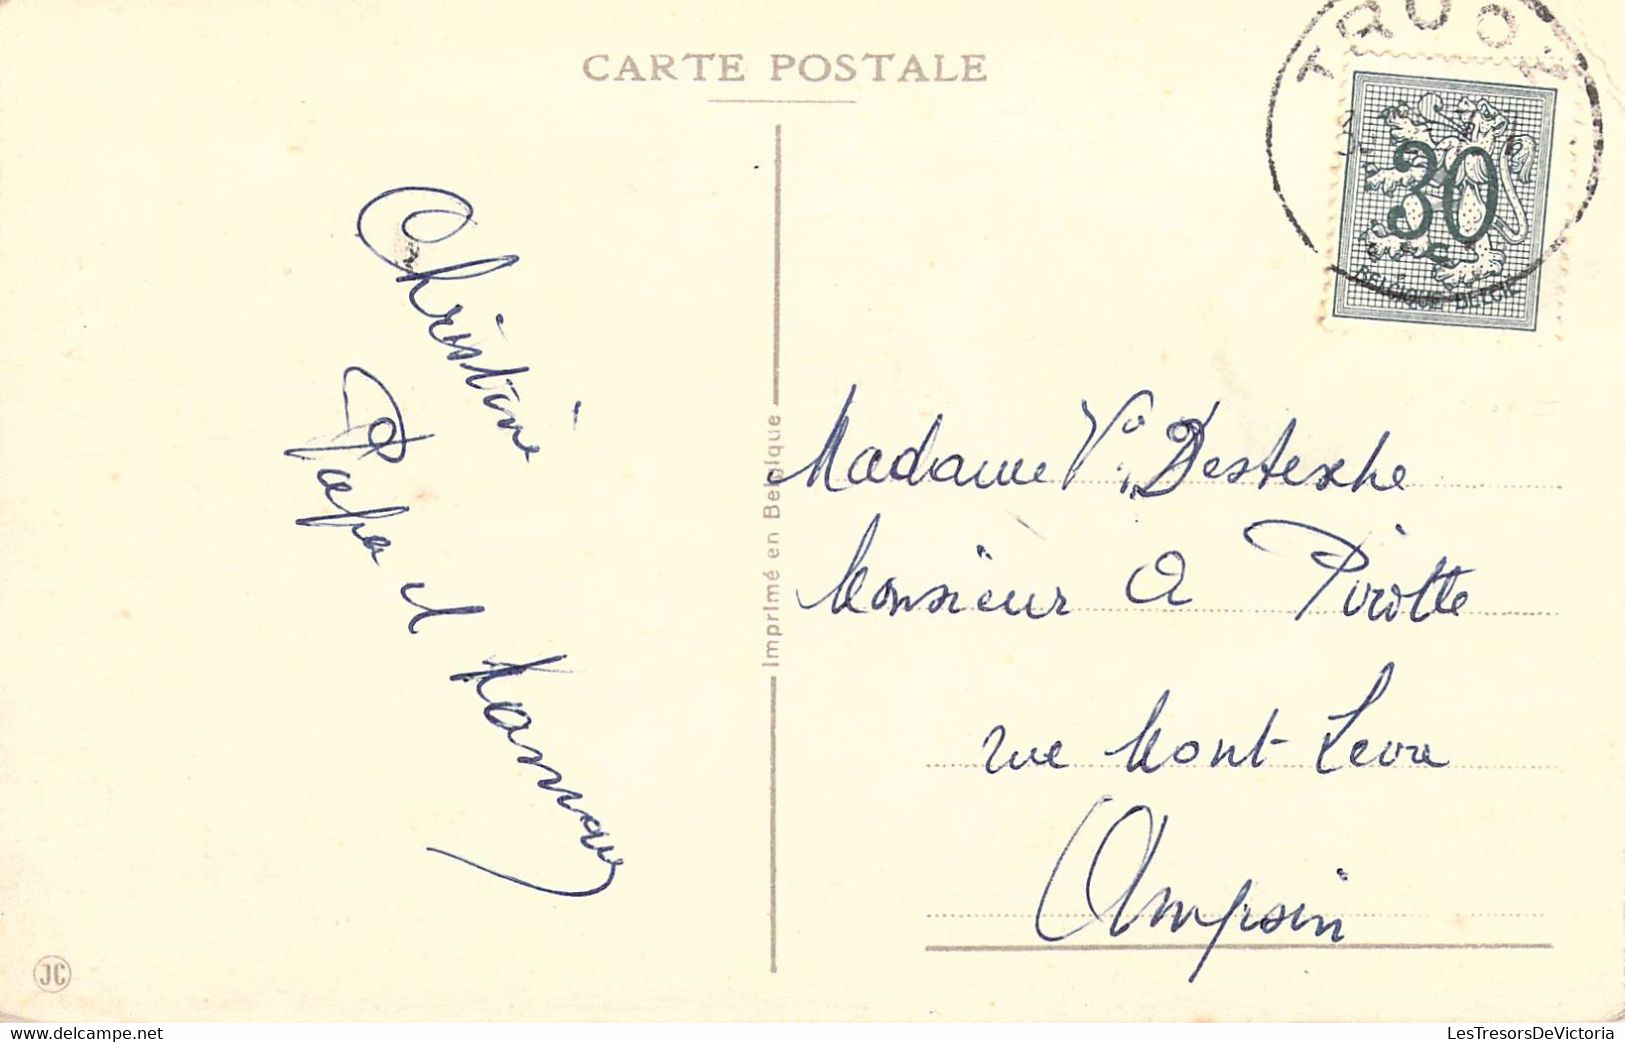 CARTE POSTALE
TROOZ
30
c
BELGIQUE BELGIE
Christine
Papa et Maman
Imprimé en Belgique
Madame Vᵉ Destexhe
Monsieur A Pirotte
rue Mont Leva
Ampsin
JC
www.delcampe.net
LesTresorsDeVictoria